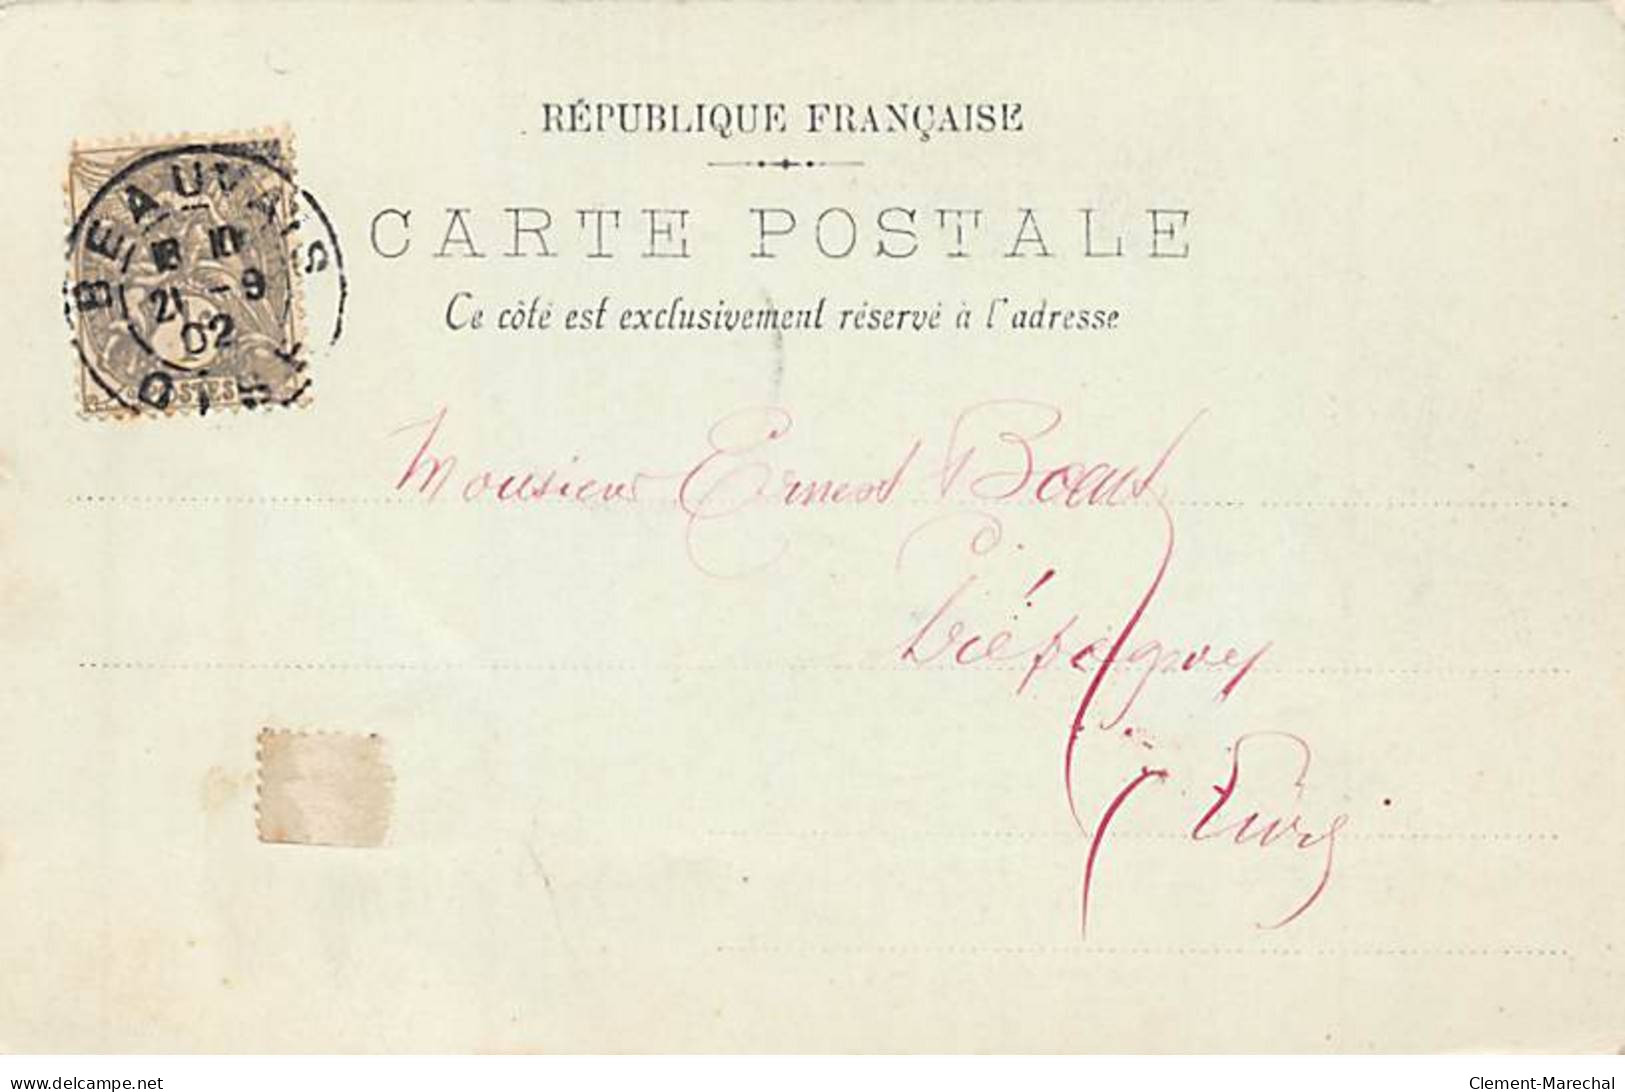 RÉPUBLIQUE FRANÇAISE
CARTE POSTALE
Ce côté est exclusivement réservé à l'adresse
BEAUVAIS
21 -9
02
OISE
POSTES
Monsieur Ernest Boeuf
Eure
delcampe.net
Clement-Marechal